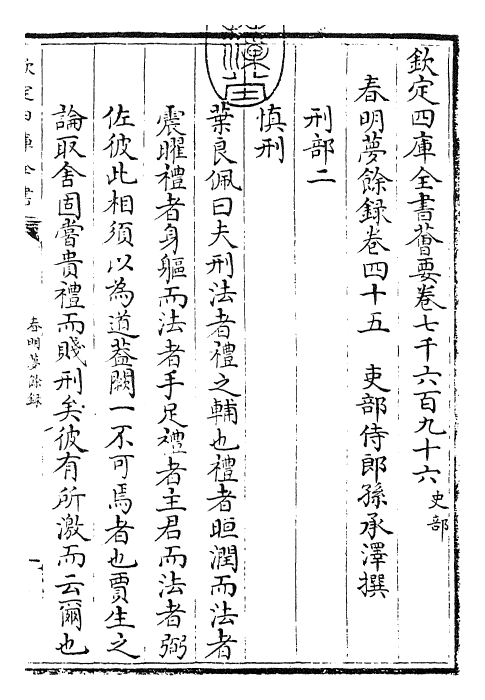 欽定四庫全書薈要卷七千六百九十六 吏部
春明夢餘録卷四十五 吏部侍郎孫承澤撰
刑部二
慎刑
葉良佩曰夫刑法者禮之輔也禮者晅潤而法者
震曜禮者身軀而法者手足禮者主君而法者弼
佐彼此相須以為道葢闕一不可焉者也賈生之
論取舍固嘗貴禮而賤刑矣彼有所激而云爾也
欽定四庫全書
春明夢餘録
一